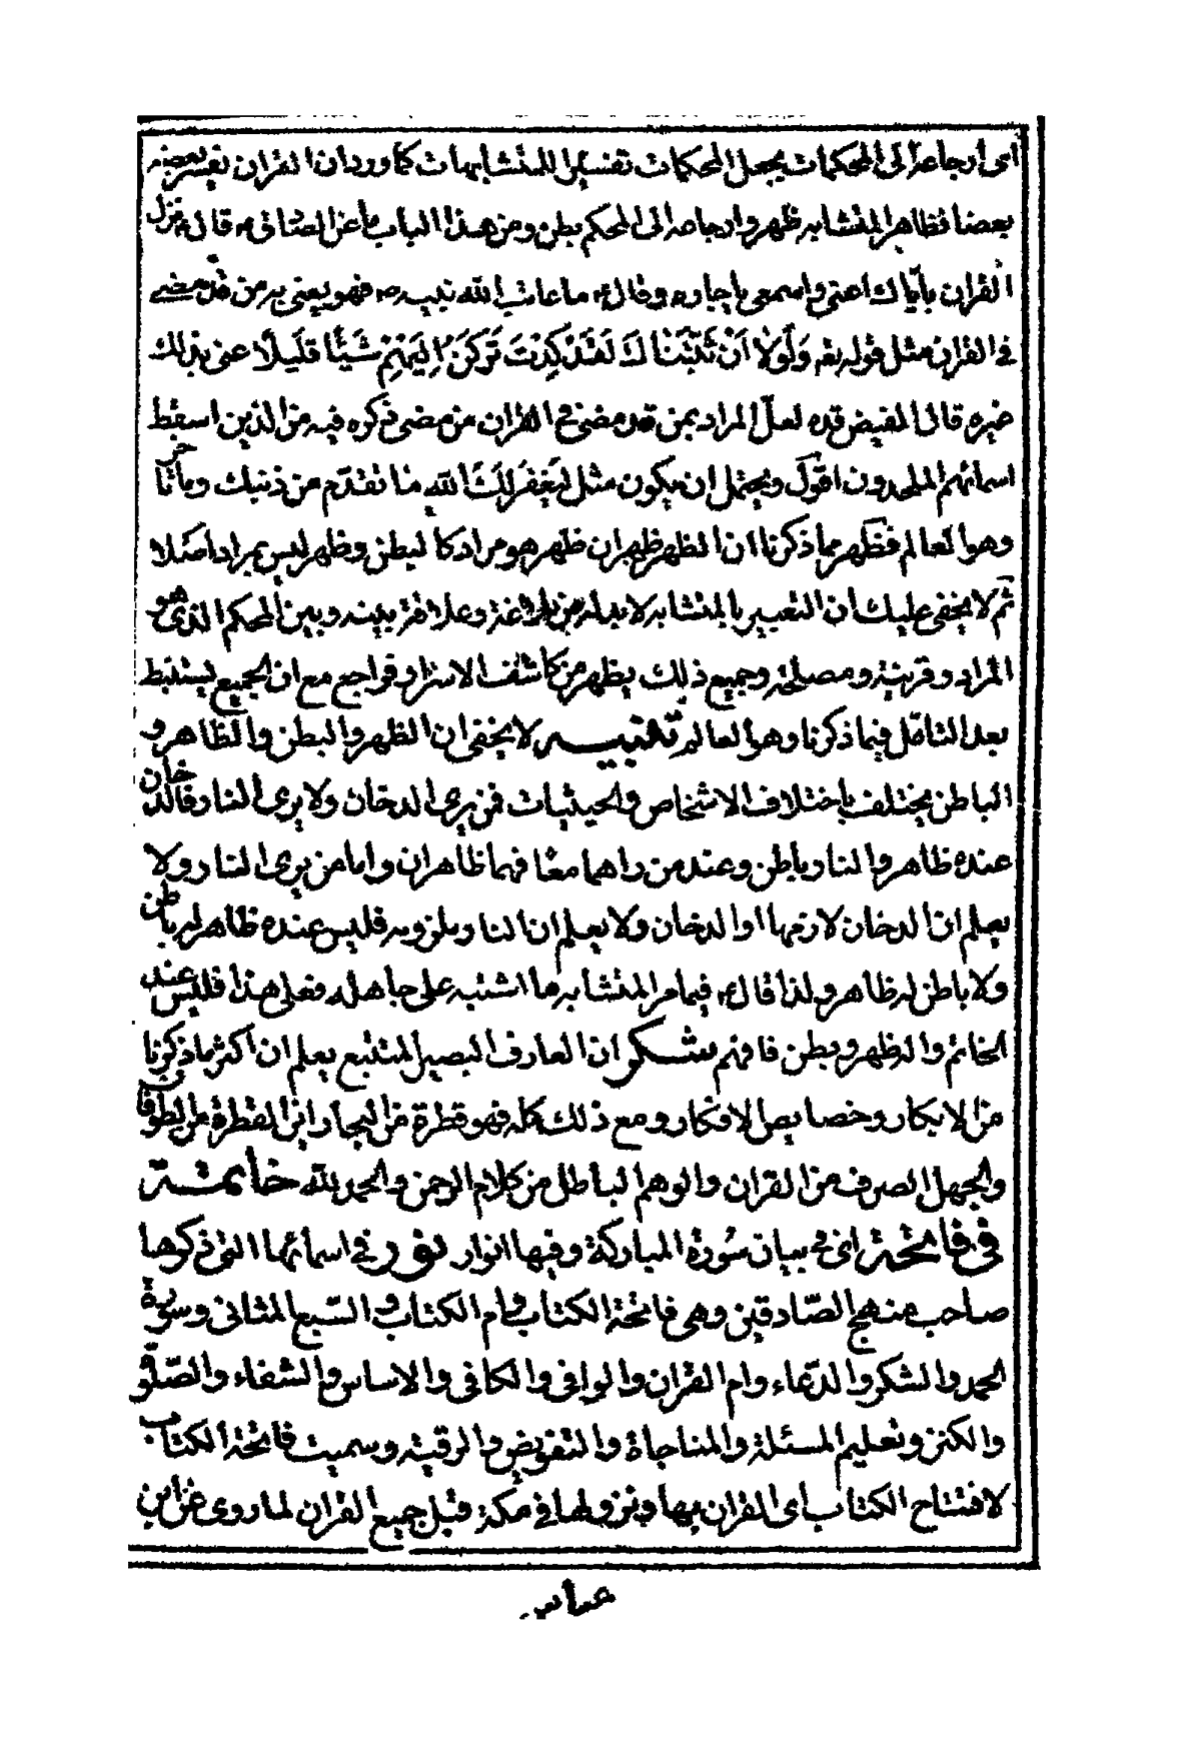 اى ارجاعه الى المحكمات يجعل المحكمات تفسيرا للمتشابهات كما ورد ان القران يفسر بعضه
بعضا فظاهر المتشابه ظهر وارجاعه الى المحكم بطن ومن هذا الباب ما عن الصادق ع قال ع نزل
القران بآياك اعنى واسمعى يا جاره وقال ع ما عاتب الله نبيه ص فهو يعنى به من قد مضى
فى القران مثل قوله تعه وَلَوْلا اَنْ ثَبَّتْنٰاكَ لَقَدْ كِدْتَ تَرْكَنُ اِلَيْهِمْ شَيْئًا قَلِيلًا عنى بذلك
غيره قال الفيض قده لعلّ المراد بمن قد مضى فى القران من مضى ذكره فيه من الذين اسقط
اسمائهم الملحدون اقول ويحتمل ان يكون مثل لِيَغْفِرَ لَكَ اللّٰهِ مٰا تقدّم من ذنبك وما تأخر
وهو العالم فظهر مما ذكرنا ان الظهر ظهران ظهر هو مراد كالبطن وظهر ليس بمراد اصلا
ثم لا يخفى عليك ان التعبير بالمتشابه لا بد له من بلاغة وعلاقة بينه وبين المحكم الذى هو
المراد وقرينة ومصلحة وجميع ذلك يظهر من كاشف الاسرار فراجع مع ان الجميع يستنبط
بعد التامّل فيما ذكرنا وهو العالم تنبيه لا يخفى ان الظهر والبطن والظاهر و
الباطن يختلف باختلاف الاشخاص والحيثيات فمن يرى الدخان ولا يرى النار فالدخان
عنده ظاهر والنار باطن وعند من راهما معًا فهما ظاهران واما من يرى النار ولا
يعلم ان الدخان لازمها او الدخان ولا يعلم ان النار ملزومه فليس عنده ظاهر له باطن
ولا باطن له ظاهر ولذا قال ع فيما مر المتشابه ما اشتبه على جاهله فعلى هذا فليس عند
الخاتم واله ظهر وبطن فافهم شكر ان العارف البصير المتتبع يعلم ان اكثر ما ذكرنا
من الابكار وخصايص الافكار ومع ذلك كله فهو قطرة من البحار اين القطرة من الطوفان
والجهل الصرف من القران والوهم الباطل من كلام الرحمن والحمد لله خاتمة
فى فاتحة اى فى بيان سُورة المباركة وفيها انوار نور فى اسمائها التى ذكرها
صاحب منهج الصّادقين وهى فاتحة الكتاب وام الكتاب والسّبع المثانى وسورة
الحمد والشكر والدّعاء وام القران والوافى والكافى والاساس والشفاء والصّلوة
والكنز وتعليم المسئلة والمناجاة والتفويض والرقية وسميت فاتحة الكتاب
لافتتاح الكتاب اى القران بها ونزولها فى مكة قبل جميع القران لما روى عن ابن
عباس